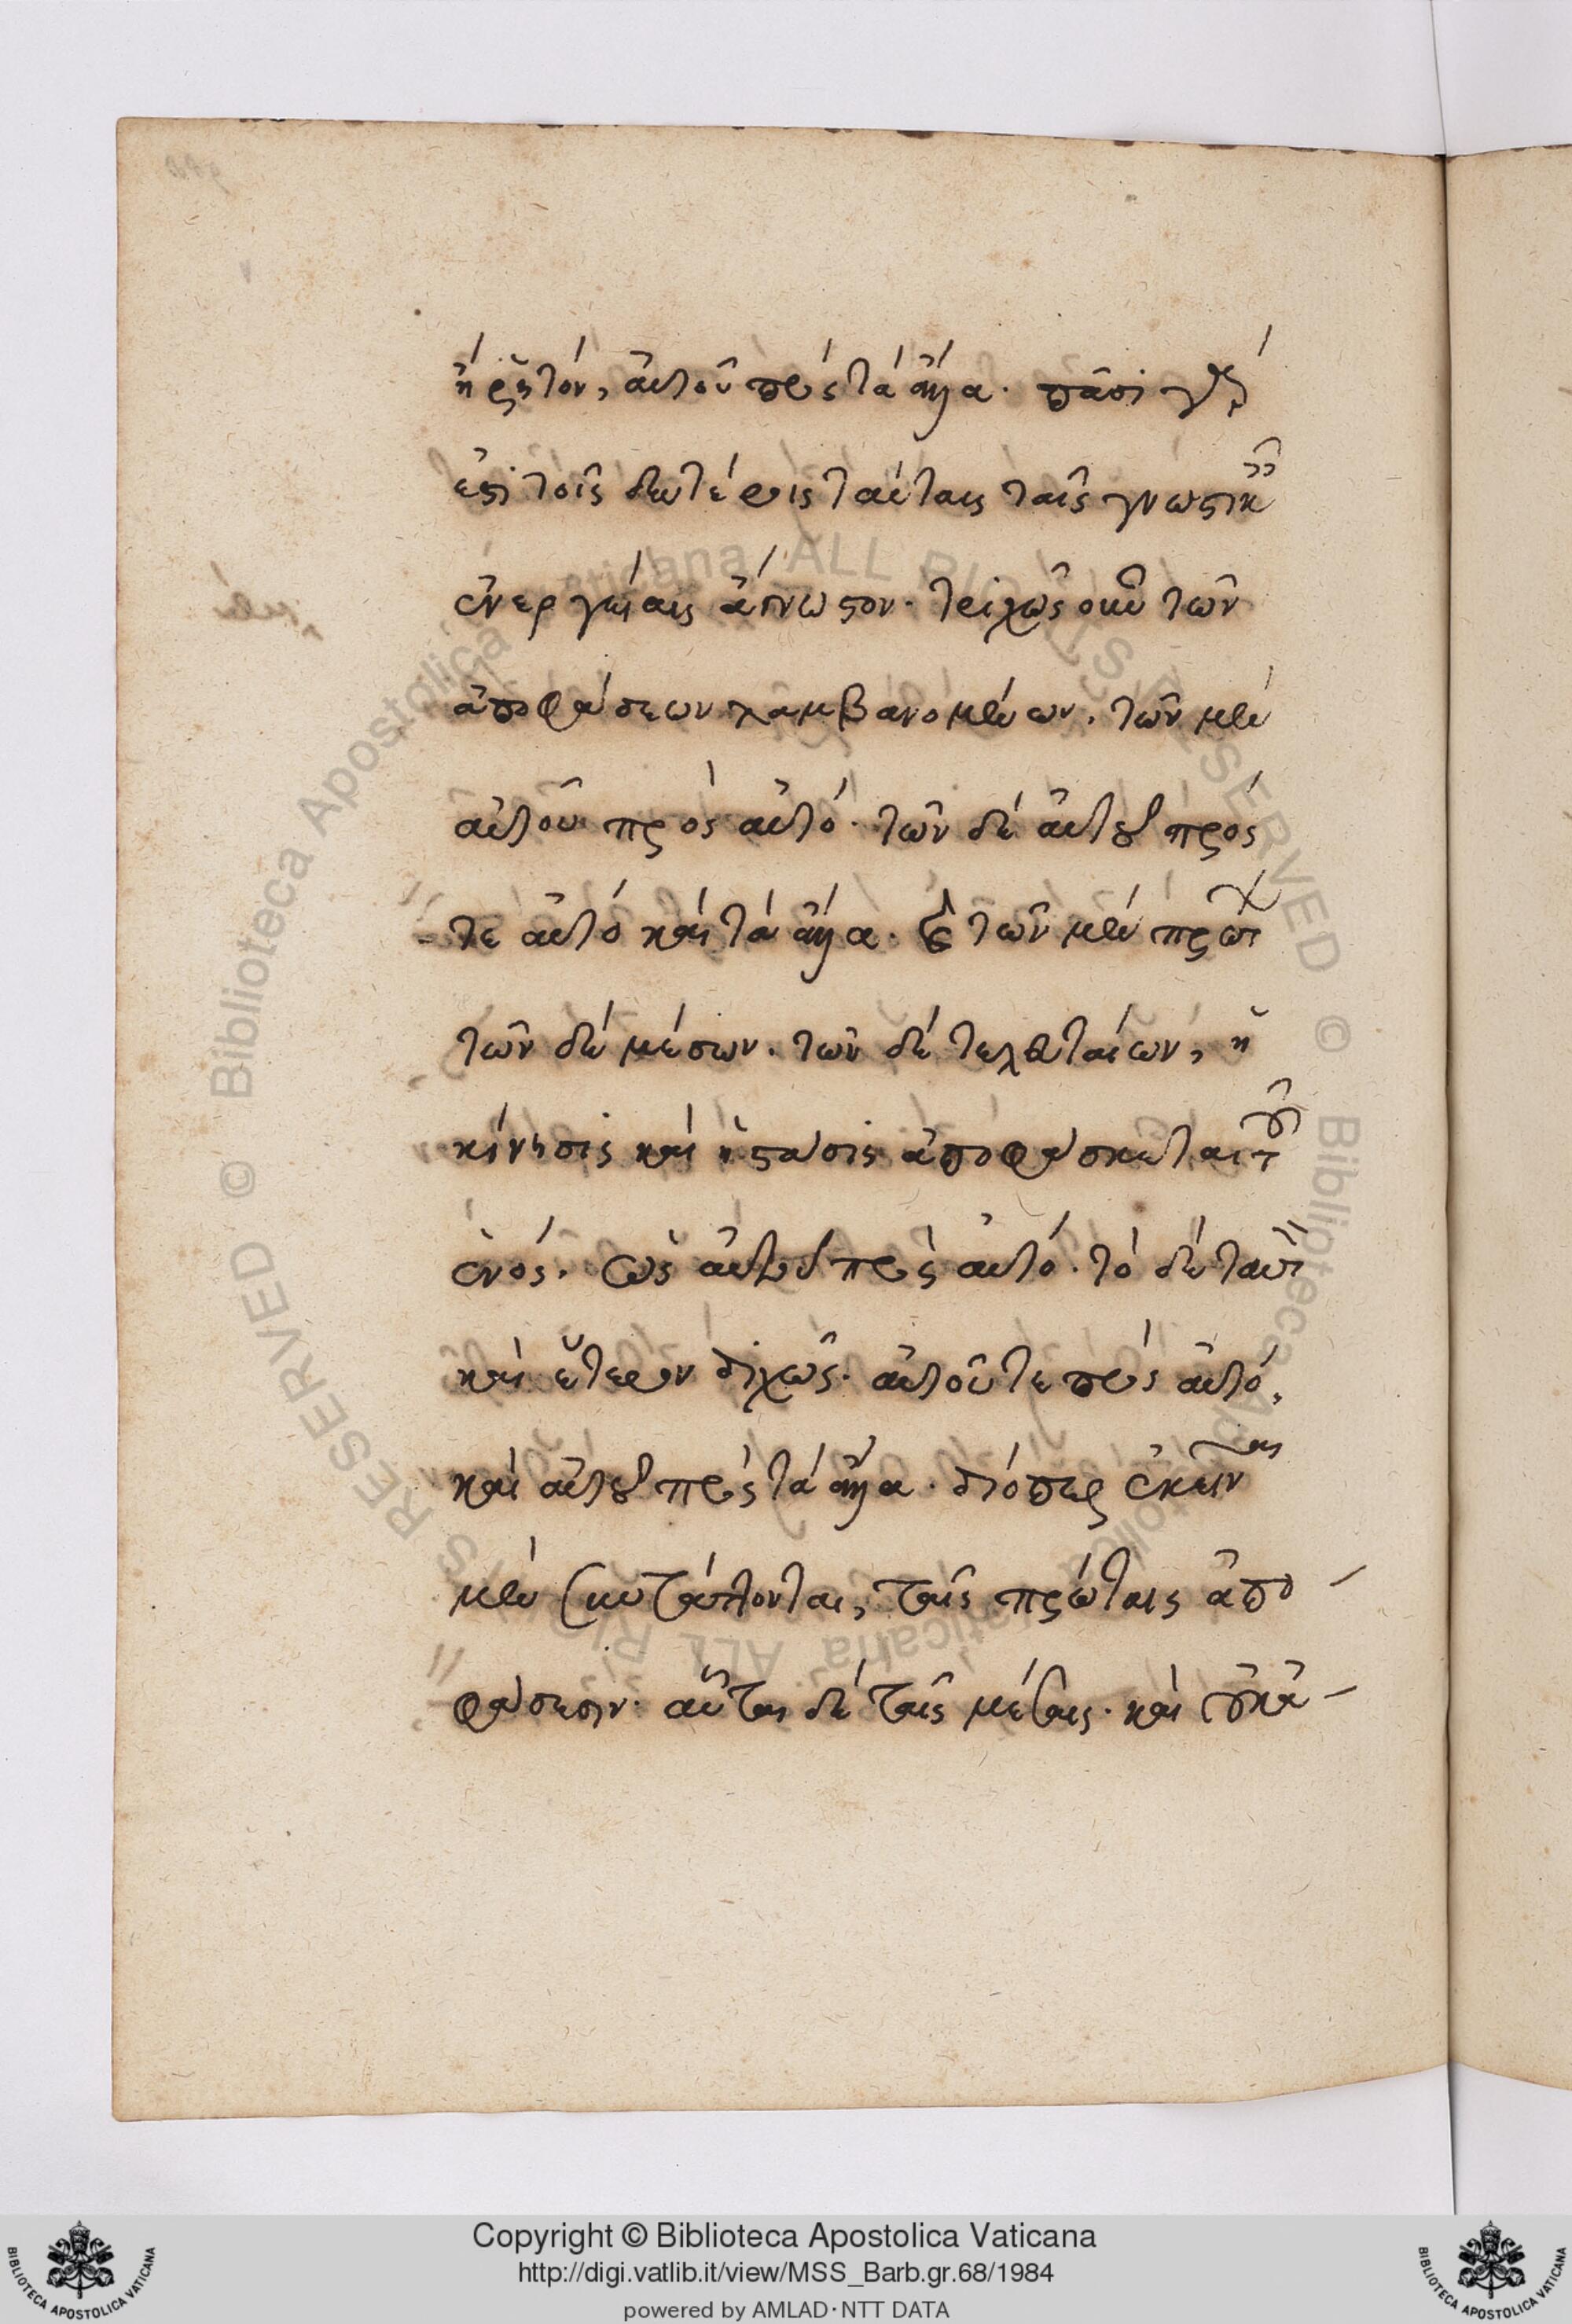 ἢ ῥητόν, αὐτοῦ πρὸς τὰ ἄλλα. πᾶσι γὰρ
ἐπὶ τοῖς δευτέροις ταύταις ταῖς γνωστικαῖς
ἐνεργείαις ἄγνωστον. τριχῶς οὖν τῶν
ἀποφάσεων λαμβανομένων. τῶν μὲν
αὐτοῦ πρὸς αὐτό. τῶν δὲ αὐτοῦ πρὸς
τε αὐτὸ καὶ τὰ ἄλλα. τῶν μὲν πρώτων
τῶν δὲ μέσων. τῶν δὲ τελευταίων, ἡ
κίνησις καὶ ἡ στάσις ἀποφάσκεται τοῦ
ἑνός. ὡς αὐτοῦ πρὸς αὐτό. τὸ δὲ ταὐτὸν
καὶ ἕτερον διχῶς. αὐτοῦ τε πρὸς αὐτό,
καὶ αὐτοῦ πρὸς τὰ ἄλλα. διόπερ ἐκεῖναι
μὲν συντάττονται, ταῖς πρώταις ἀπο-
φάσεσιν. αὗται δὲ ταῖς μέσαις. καὶ
Copyright © Biblioteca Apostolica Vaticana
http://digi.vatlib.it/view/MSS_Barb.gr.68/1984
powered by AMLAD·NTT DATA
BIBLIOTECA APOSTOLICA VATICANA
BIBLIOTECA APOSTOLICA VATICANA
© Biblioteca Apostolica Vaticana ALL RIGHTS RESERVED
© Biblioteca Apostolica Vaticana ALL RIGHTS RESERVED